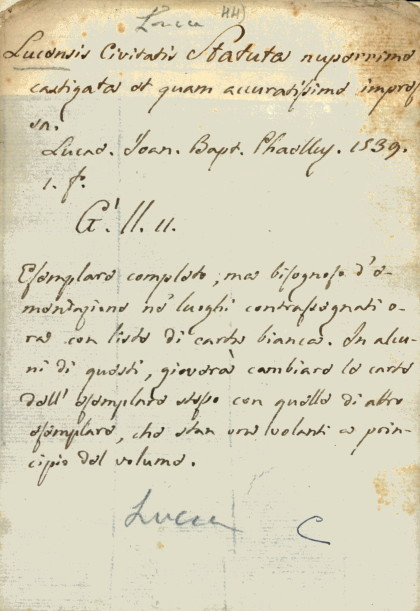 Lucca 44)
Lucensis Civitatis Statuta nuperrime
castigata et quam accuratissime impres
sa.
Lucae. Ioan. Bapt. Phaelli. 1539.
1. f.
G. II. 11.
Esemplare completo, ma bisognoso d'e-
mendazione ne' luoghi contrassegnati o-
ra con liste di carta bianca. In alcu-
ni di questi, gioverà cambiare le carte
dell' esemplare stesso con quelle di altro
esemplare, che stan ora volanti a prin-
cipio del volume.
Lucca
C